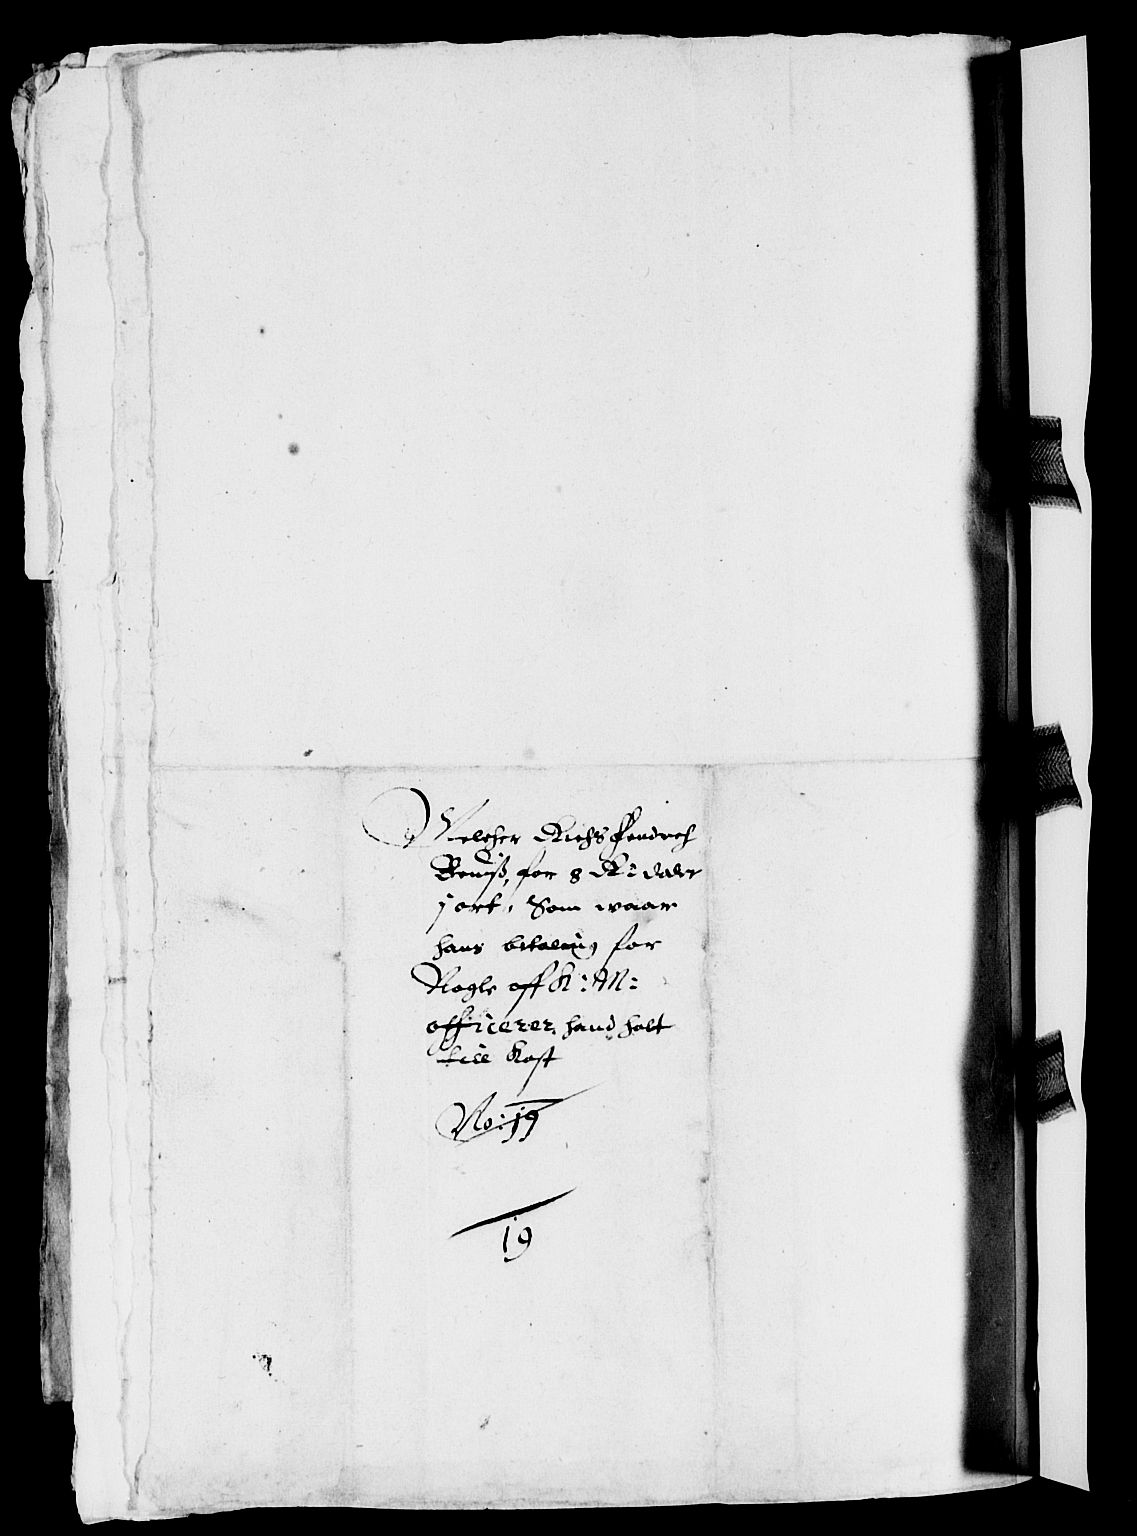 Melcher Richs fendrich
Beuiß, for 8 R: daler
j ort, Som waar
hans betaling for
Nogle off K: M:
officerer, hand holt
till Kost
No: 19
19